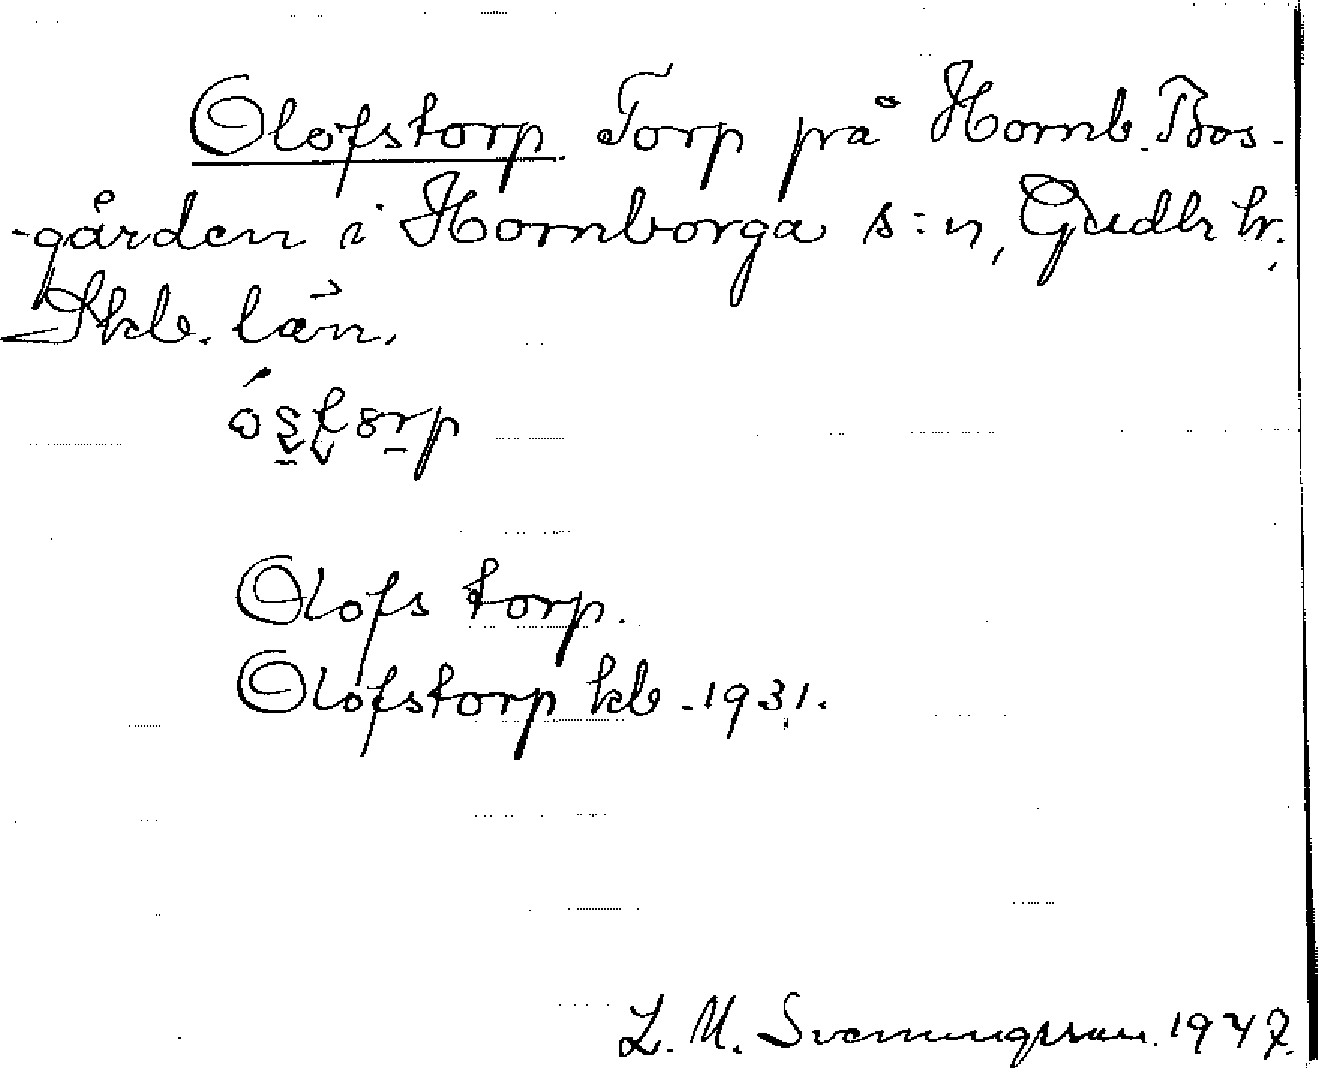 Olofstorp. Torp på Hornb. Bos-
-gården i Hornborga s:n, Gudh hr.,
Skb. län.
Olofs torp.
Olofstorp kb -1931.
L. M. Svenungsson. 1947.